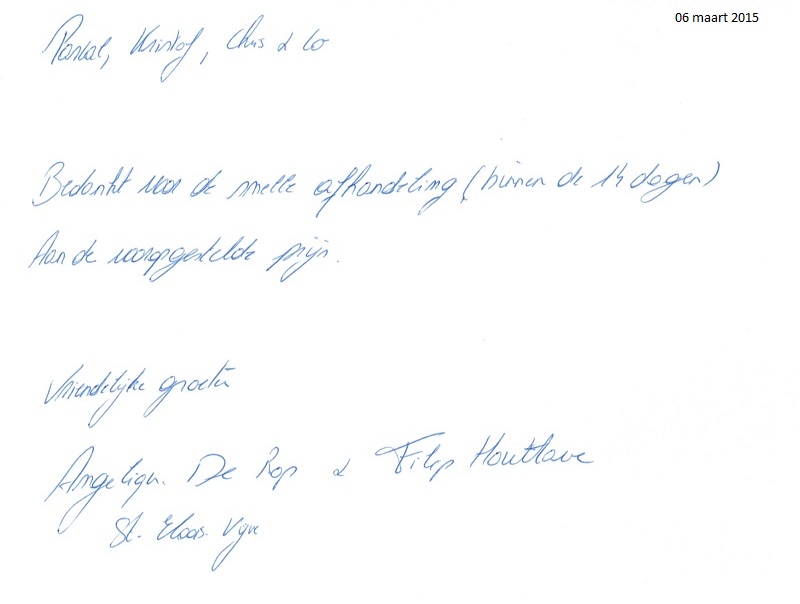 06 maart 2015
Pascal, Kristof, Chris & Co
Bedankt voor de snelle afhandeling (binnen de 14 dagen)
Aan de vooropgestelde prijs.
Vriendelijke groeten
Angeliqu. De Rop & Filip Houttave
St. Eloois Vijve